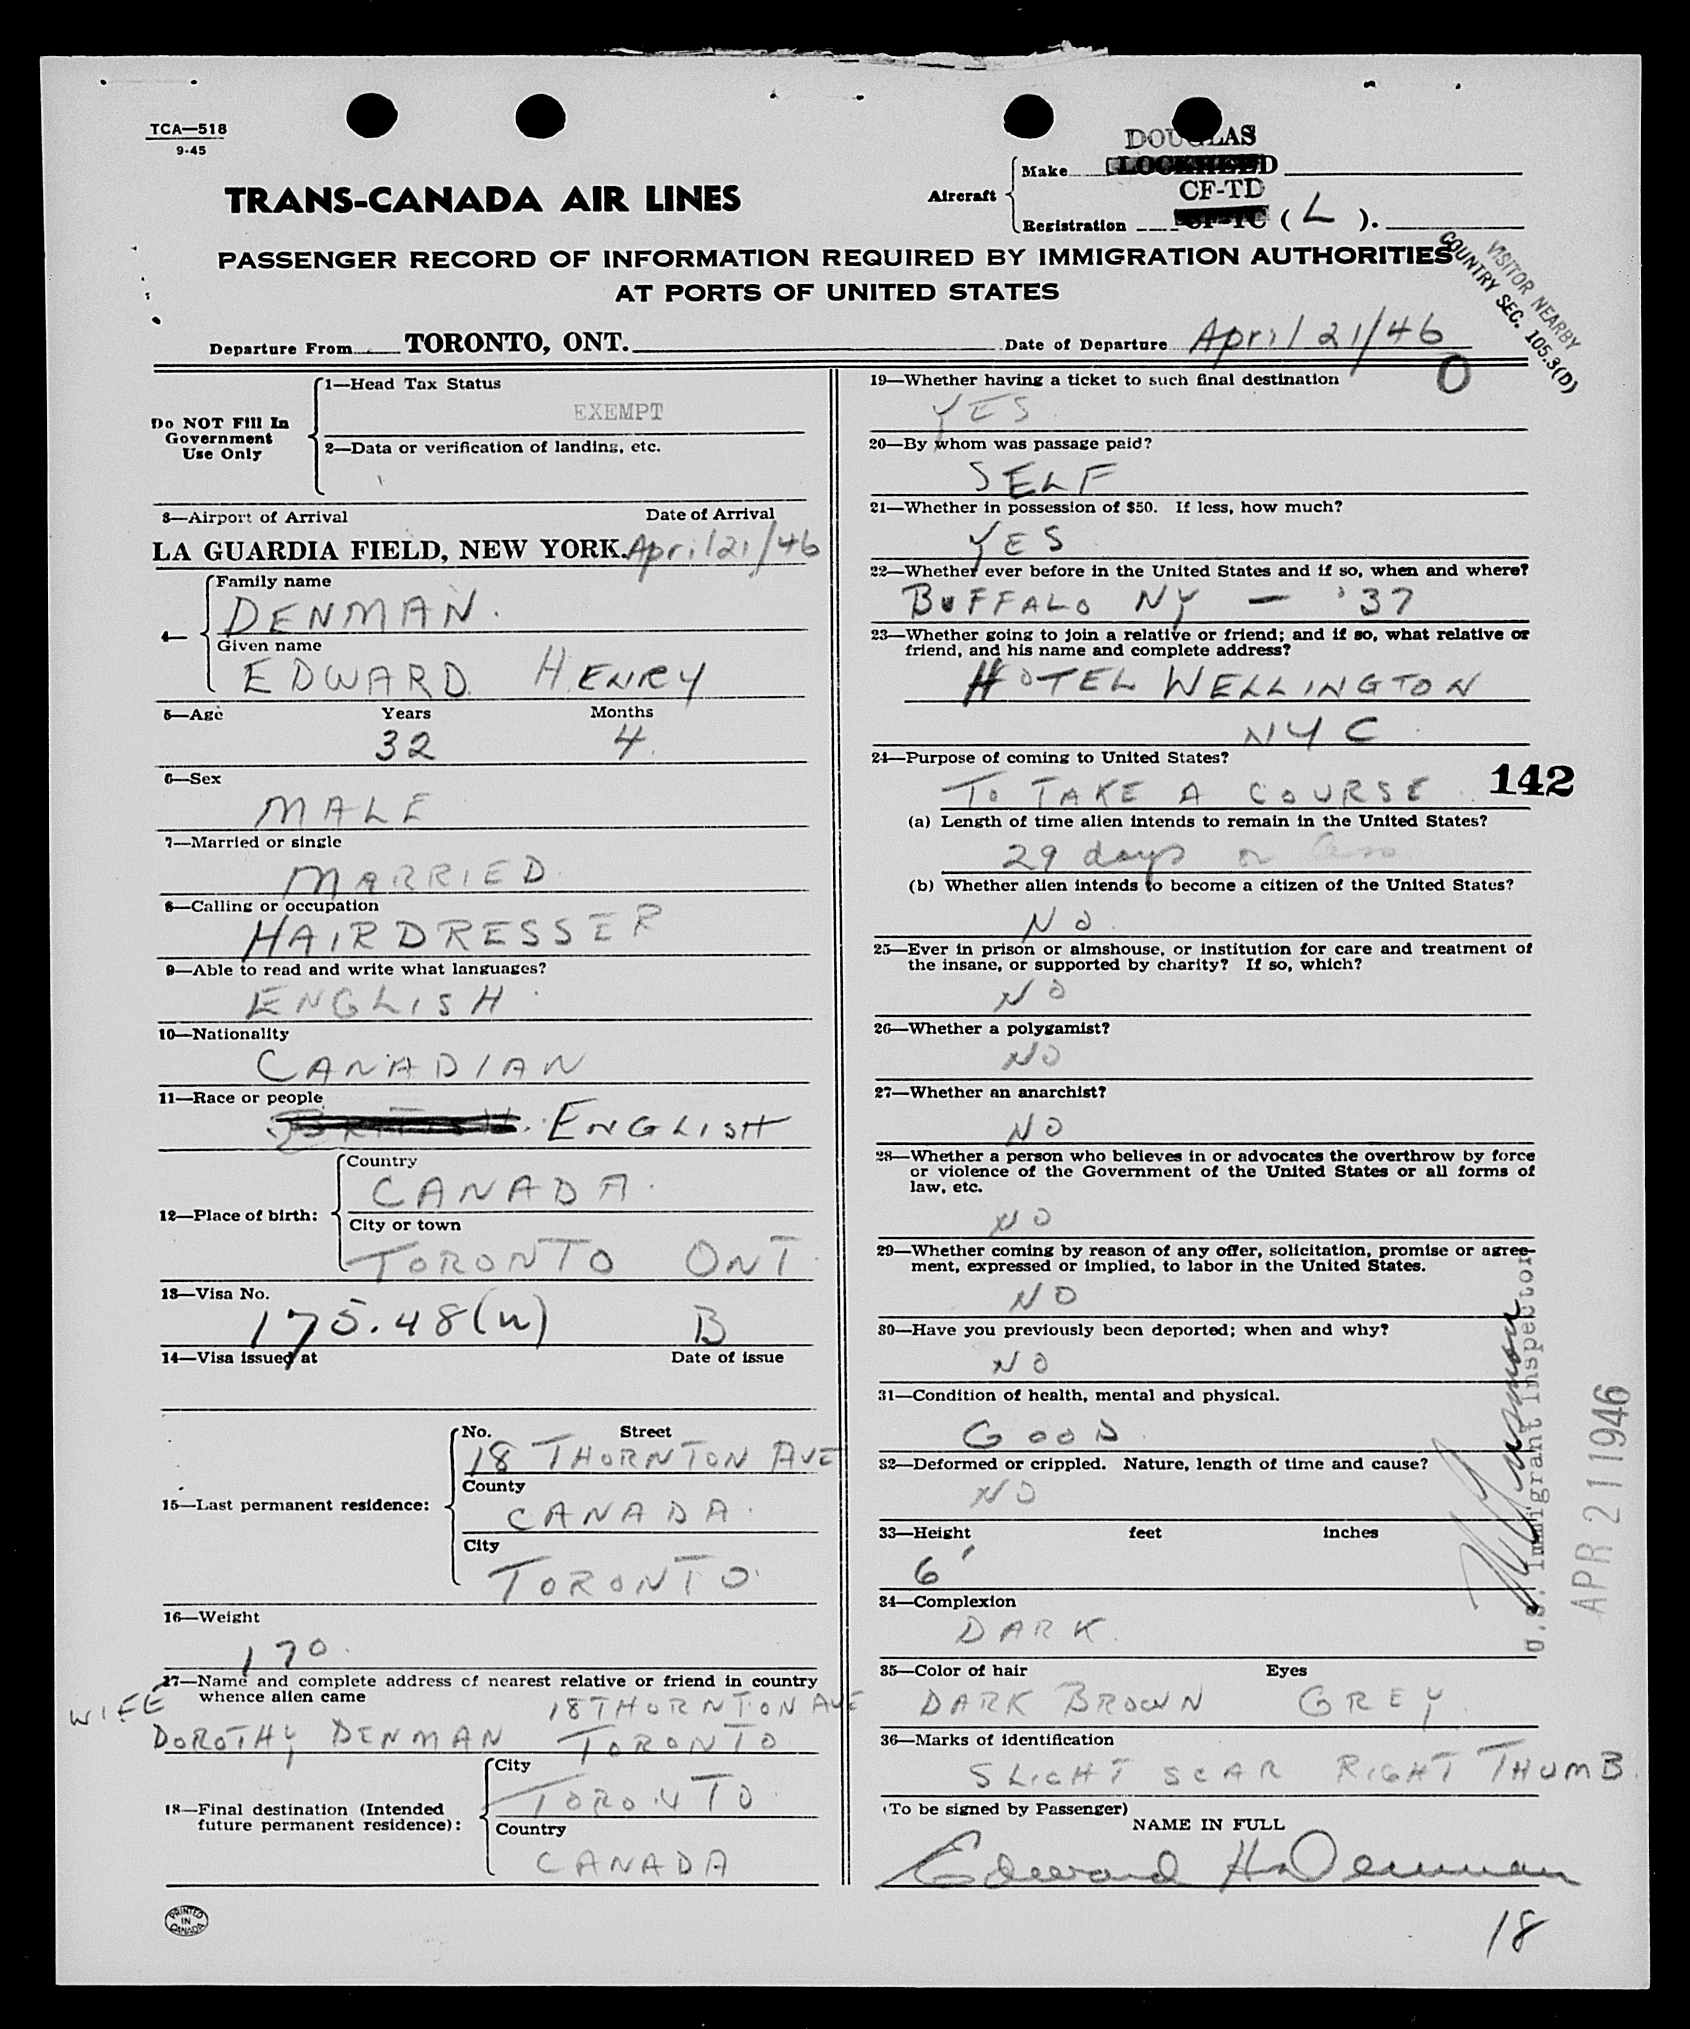 TCA—518
9-45
DOUGLAS
Aircraft
Make LOCKHEED
CF-TD
Registration CF-TC ( L ).
TRANS-CANADA AIR LINES
PASSENGER RECORD OF INFORMATION REQUIRED BY IMMIGRATION AUTHORITIES
AT PORTS OF UNITED STATES
VISITOR NEARBY
COUNTRY SEC. 105.3(D)
Departure From TORONTO, ONT. Date of Departure April 21/46
0
Do NOT Fill In
Government
Use Only
1—Head Tax Status
EXEMPT
2—Data or verification of landing, etc.
3—Airport of Arrival Date of Arrival
LA GUARDIA FIELD, NEW YORK. April 21/46
4—
Family name
DENMAN.
Given name
EDWARD HENRY
5—Age Years Months
32 4.
6—Sex
MALE
7—Married or single
MARRIED.
8—Calling or occupation
HAIRDRESSER
9—Able to read and write what languages?
ENGLISH.
10—Nationality
CANADIAN
11—Race or people
ENGLISH
12—Place of birth:
Country
CANADA.
City or town
TORONTO ONT.
13—Visa No.
175.48(w) B
14—Visa issued at Date of issue
15—Last permanent residence:
No. Street
18 THORNTON AVE
County
CANADA.
City
TORONTO.
16—Weight
170.
17—Name and complete address of nearest relative or friend in country
whence alien came
WIFE 18 THORNTON AVE
DOROTHY DENMAN TORONTO
18—Final destination (Intended
future permanent residence):
City
TORONTO
Country
CANADA
PRINTED
IN
CANADA
19—Whether having a ticket to such final destination
YES
20—By whom was passage paid?
SELF
21—Whether in possession of $50. If less, how much?
YES
22—Whether ever before in the United States and if so, when and where?
BUFFALO NY — '37
23—Whether going to join a relative or friend; and if so, what relative or
friend, and his name and complete address?
HOTEL WELLINGTON
NYC
24—Purpose of coming to United States?
TO TAKE A COURSE. 142
(a) Length of time alien intends to remain in the United States?
29 days or less
(b) Whether alien intends to become a citizen of the United States?
NO.
25—Ever in prison or almshouse, or institution for care and treatment of
the insane, or supported by charity? If so, which?
NO
26—Whether a polygamist?
NO
27—Whether an anarchist?
NO
28—Whether a person who believes in or advocates the overthrow by force
or violence of the Government of the United States or all forms of
law, etc.
NO
29—Whether coming by reason of any offer, solicitation, promise or agree-
ment, expressed or implied, to labor in the United States.
NO
30—Have you previously been deported; when and why?
NO
31—Condition of health, mental and physical.
GOOD
32—Deformed or crippled. Nature, length of time and cause?
NO
33—Height feet inches
6'
34—Complexion
DARK.
35—Color of hair Eyes
DARK BROWN GREY.
36—Marks of identification
SLIGHT SCAR RIGHT THUMB.
(To be signed by Passenger)
NAME IN FULL
Edward H. Denman
18
U.S. Immigrant Inspector
APR 21 1946